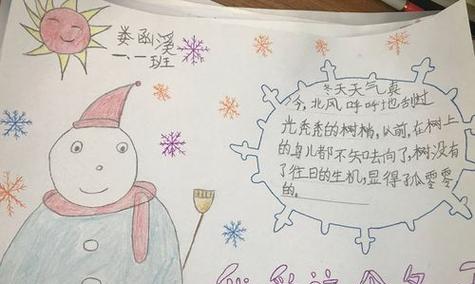 娄函溪
一.一班
冬天天气真
冷，北风呼呼地刮过
光秃秃的树梢，以前，在树上
的鸟儿都不知去向了，树没有
了往日的生机，显得孤零零
的。